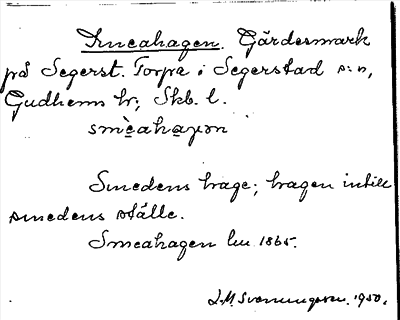 Smeahagen. Gärdesmark
på Segerst. Torpa i Segerstad s:n,
Gudhems hd; Skb. l.
smèahaγən
Smedens hage; hagen intill
smedens ställe.
Smeahagen lm 1865.
J.M. Svenungsson. 1950.